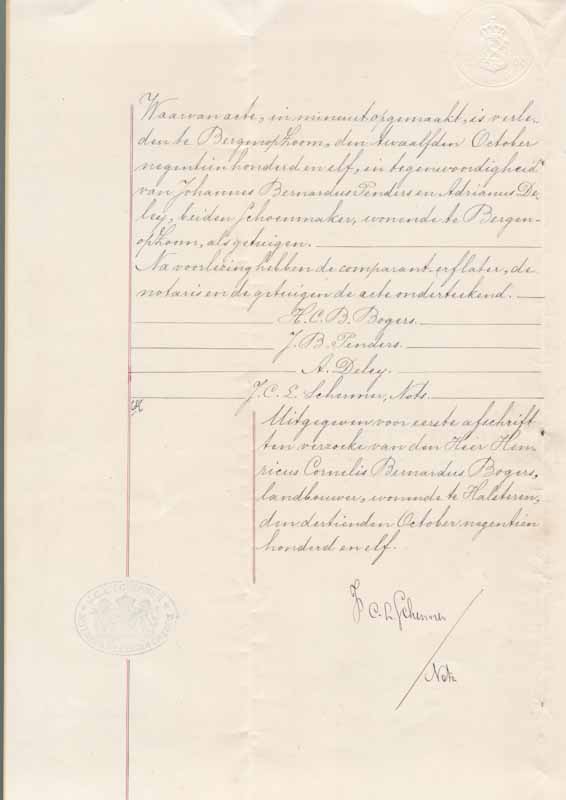 Waarvan acte, in minuut opgemaakt, is verle-
den te Bergen op Zoom, den twaalfden October
negentien honderd en elf, in tegenwoordigheid
van Johannes Bernardus Penders en Adrianus De-
ley, beiden schoenmaker, wonende te Bergen-
op Zoom, als getuigen.
Na voorlezing hebben de comparant-erflater, de
notaris en de getuigen de acte onderteekend.
H. C. B. Bogers.
J. B. Penders.
A. Deley.
J. C. L. Scheuner, Nots.
Uitgegeven voor eerste afschrift
ten verzoeke van den Heer Hen-
ricus Cornelis Bernardus Bogers,
landbouwer, wonende te Halsteren,
den dertienden October negentien
honderd en elf.
J. C. L. Scheuner
Nots